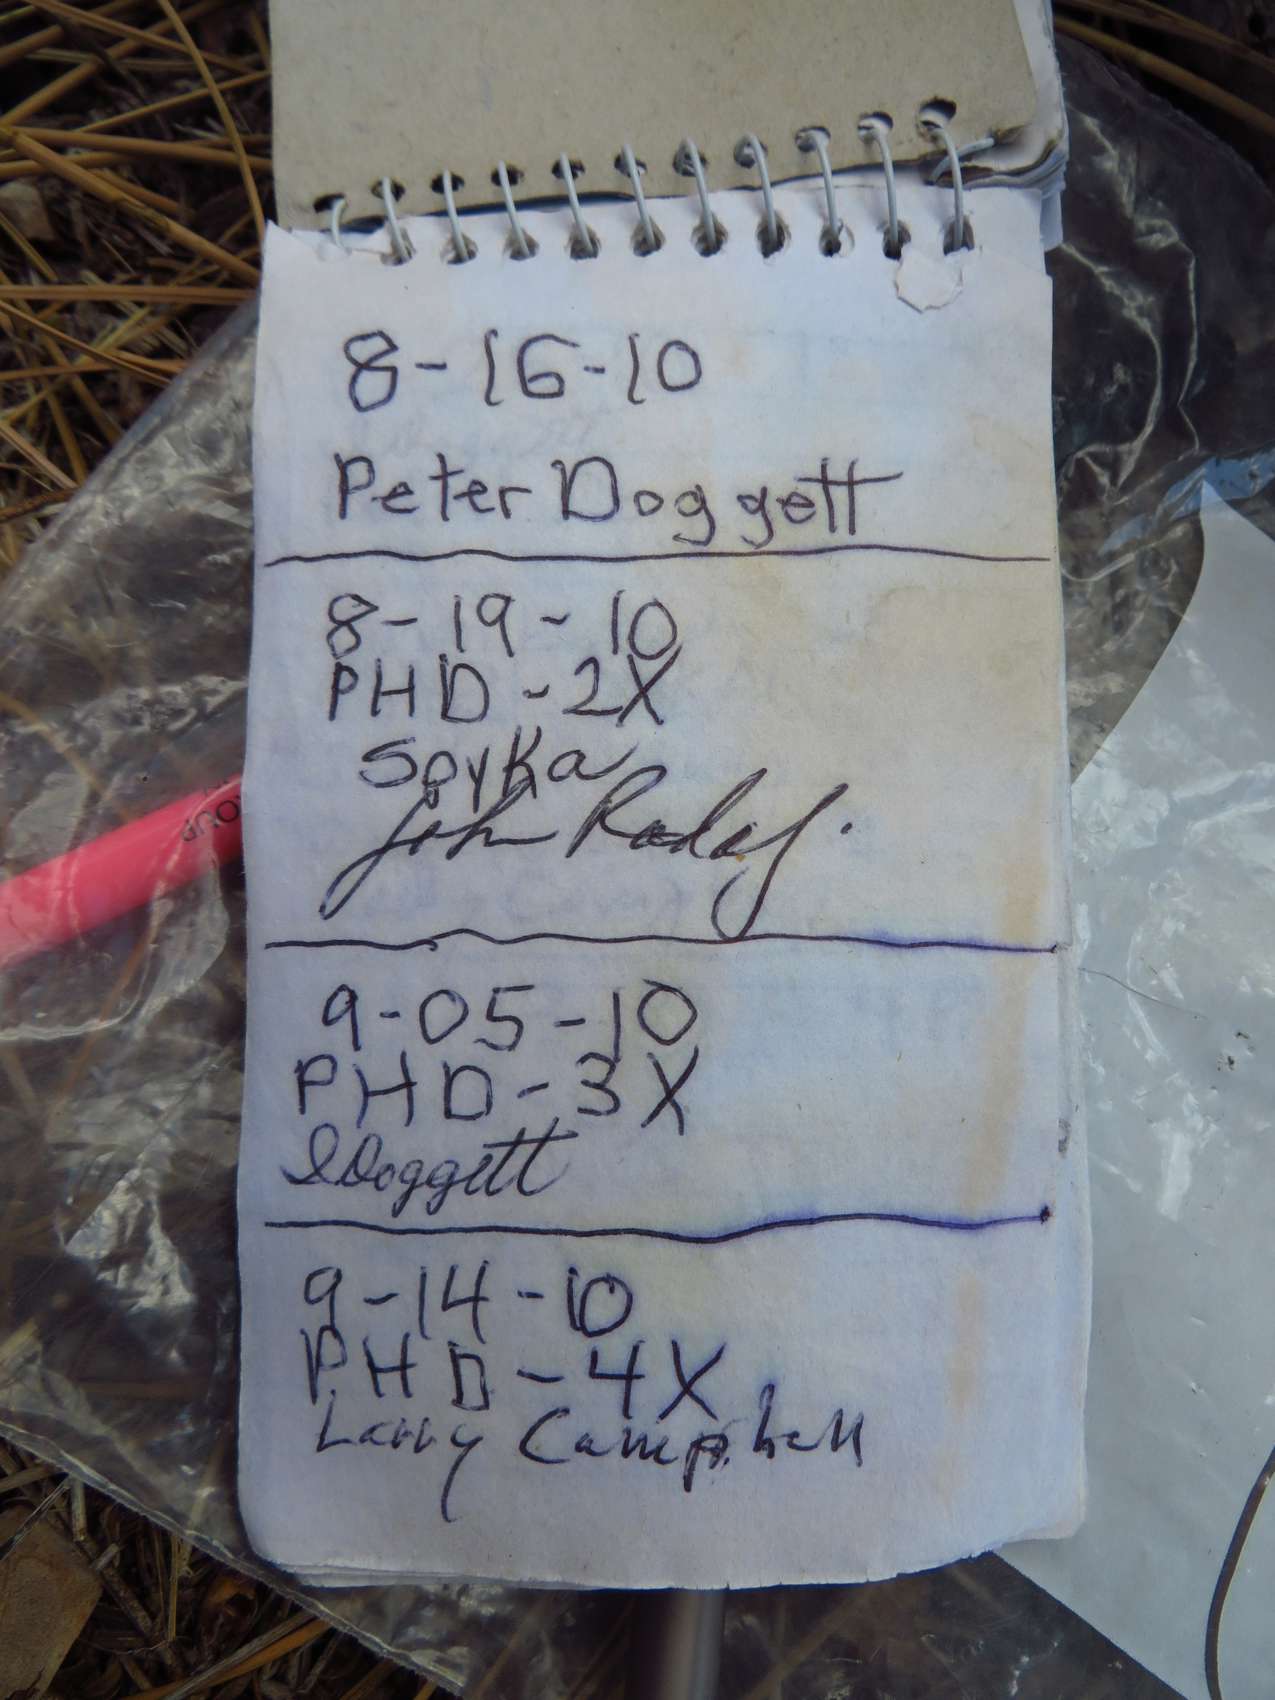 8-16-10
Peter Doggett
8-19-10
PHD-2X
Spyka
John Raday.
9-05-10
PHD-3X
Doggett
9-14-10
PHD-4X
Larry Campbell
OUP